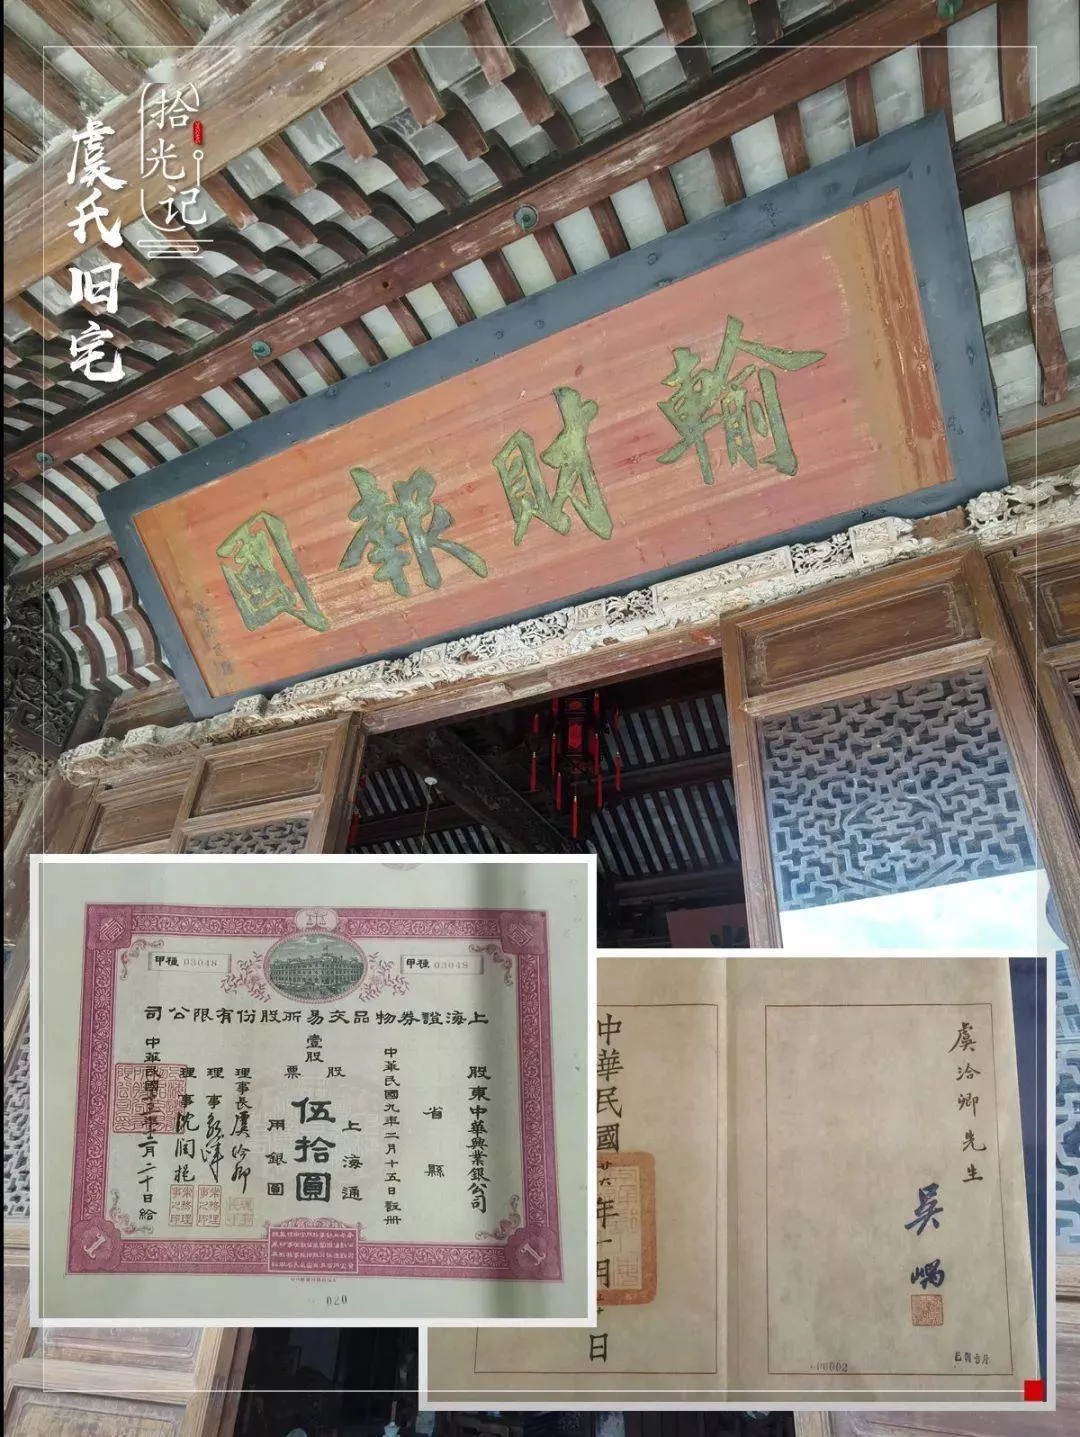 拾光记
虞氏旧宅
輸財報國
壹 壹
甲種 03048
甲種 03048
上海證券物品交易所股份有限公司
股東中華興業銀公司
省縣
中華民國九年二月十五日註冊
壹股
股票
上海通用銀圓
伍拾圓
理事長虞洽卿
理事
理事沈潤挹
中華民國十三年十二月二十日給
1 1
020
虞洽卿先生
吳嵎
中華民國廿六年一月十日
000002